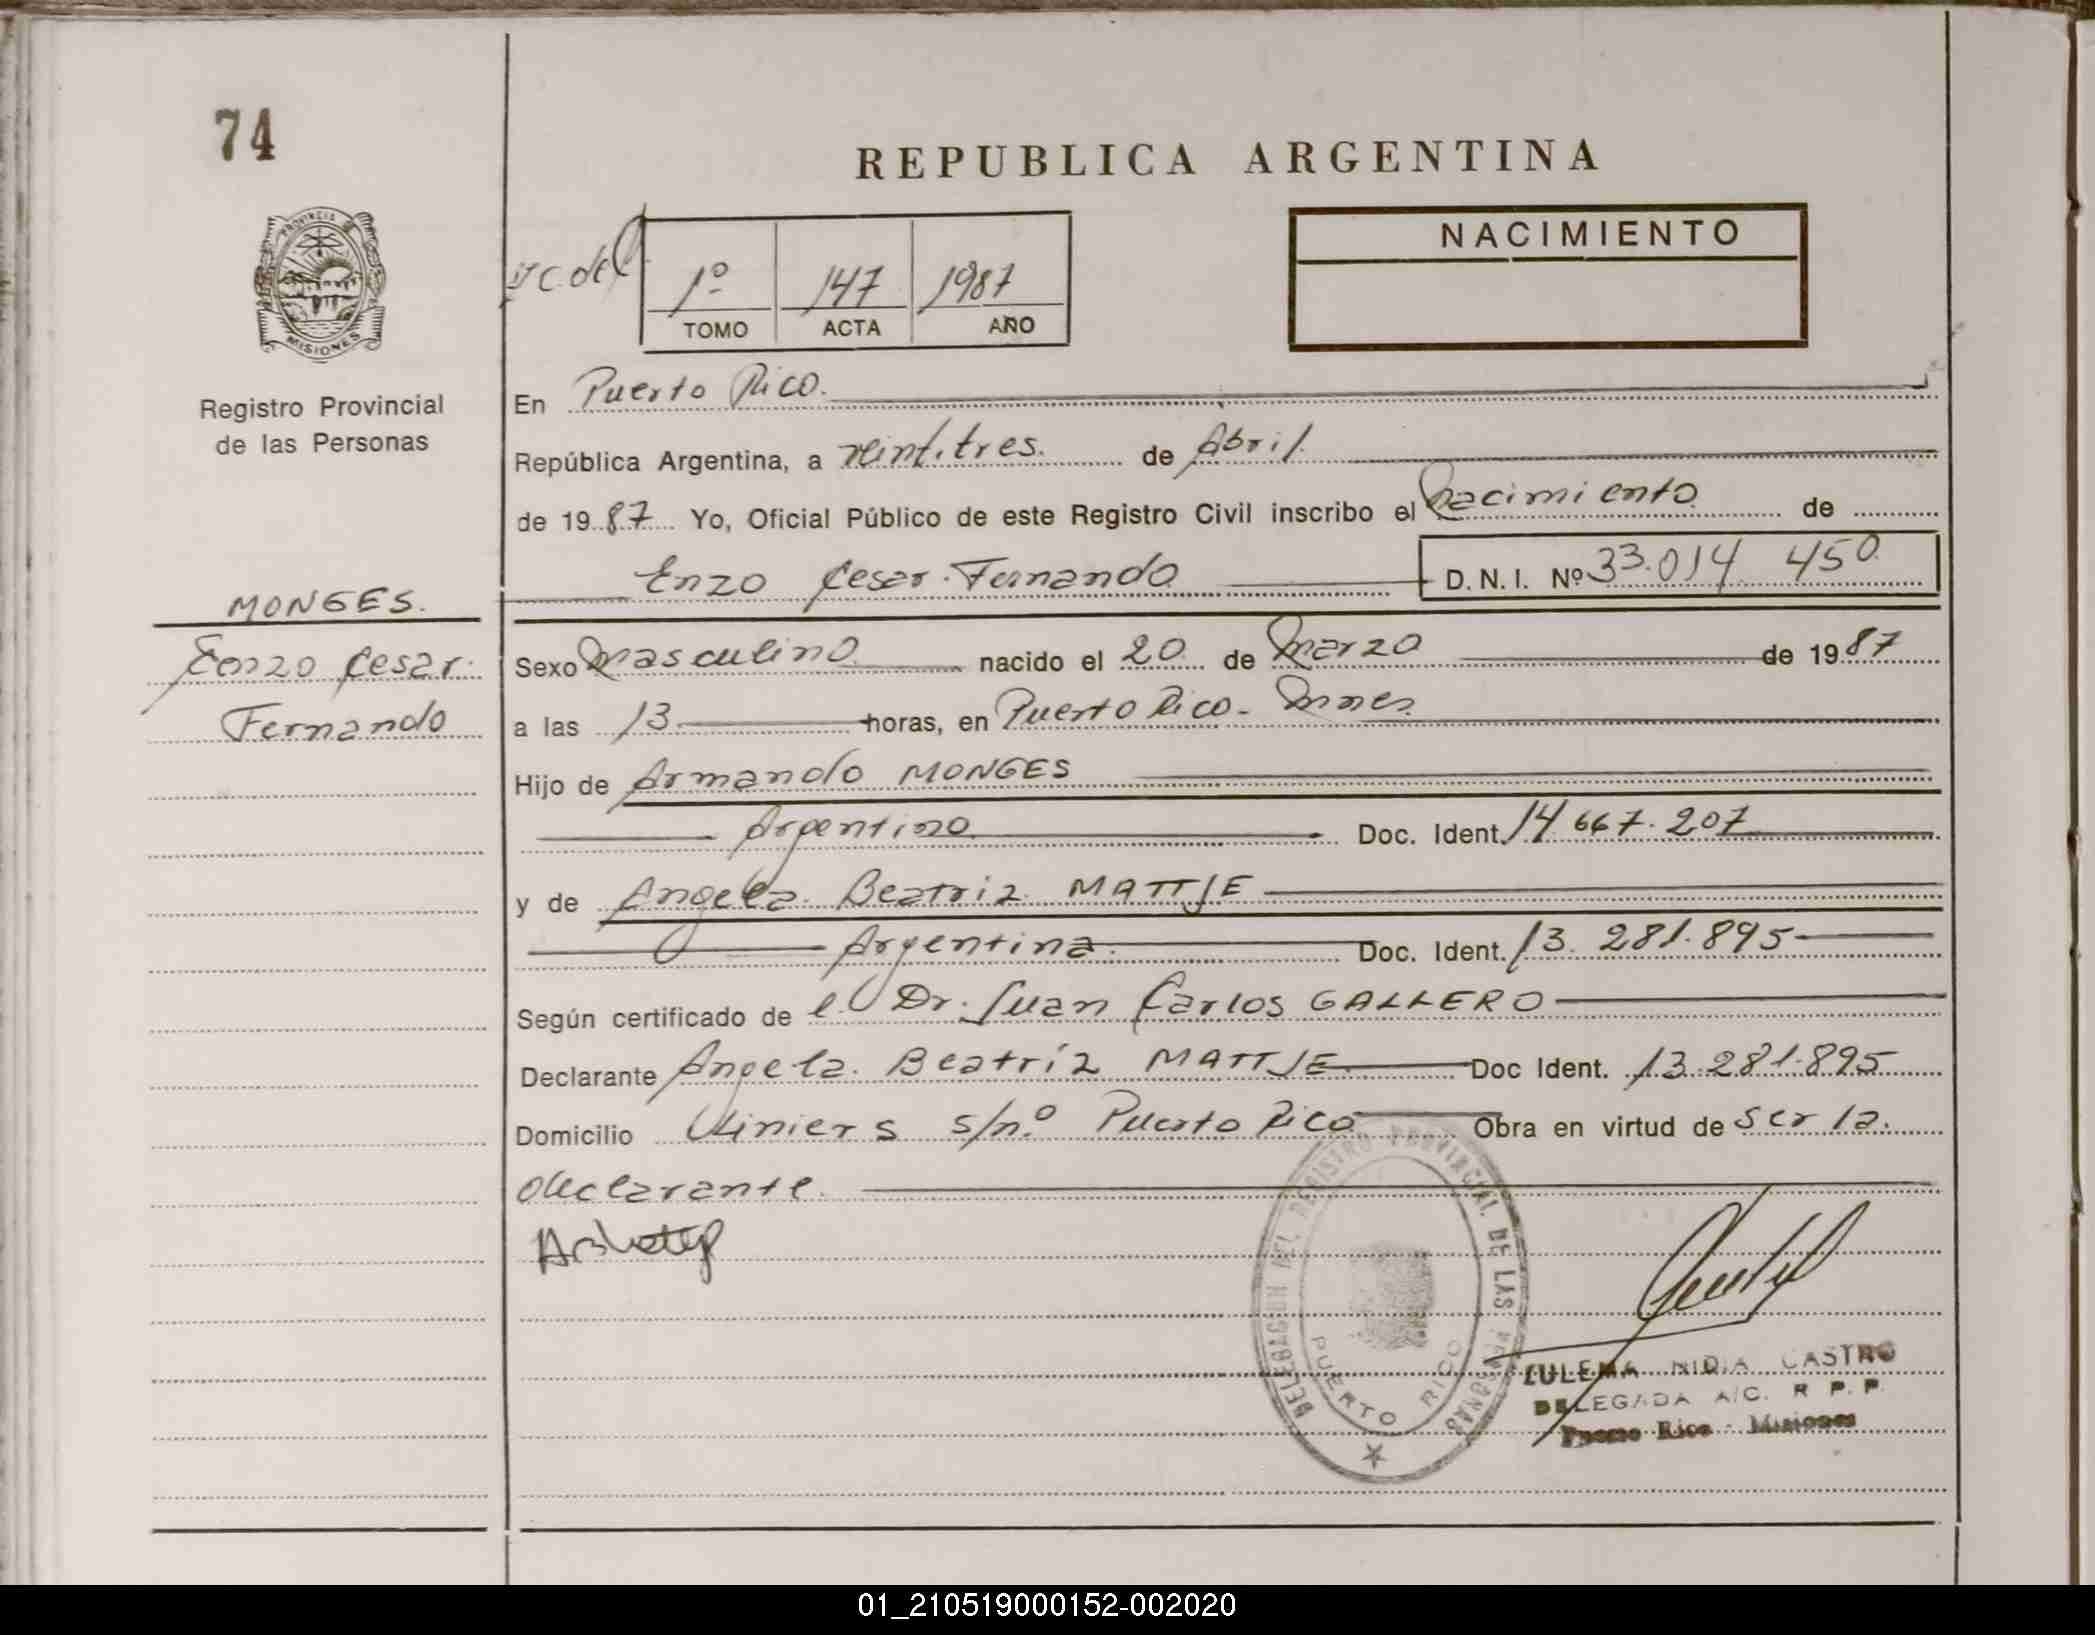 74
REPUBLICA ARGENTINA
PROVINCIA
MISIONES
Registro Provincial
de las Personas
NACIMIENTO
1º 147 1987
TOMO ACTA AÑO
En Puerto Rico.
República Argentina, a veintitres. de Abril.
de 1987 Yo, Oficial Público de este Registro Civil inscribo el Nacimiento de
Enzo Cesar Fernando D. N. I. Nº 33.014 450
MONGES.
Enzo Cesar
Fernando
Sexo Masculino nacido el 20 de Marzo de 1987
a las 13 horas, en Puerto Rico - Mnes.
Hijo de Armando MONGES
Argentino Doc. Ident. 14 667.207
y de Angela Beatriz MATTJE
Argentina. Doc. Ident. 13.281.895
Según certificado de el Dr. Juan Carlos GALLERO
Declarante Angela Beatríz MATTJE Doc Ident. 13.281.895
Domicilio Liniers s/nº Puerto Rico Obra en virtud de ser la
declarante.
DELEGACION DEL REGISTRO PROVINCIAL DE LAS PERSONAS
PUERTO RICO
ZULEMA NIDIA CASTRO
DELEGADA A/C. R P. P.
Puerto Rico - Misiones
01_210519000152-002020